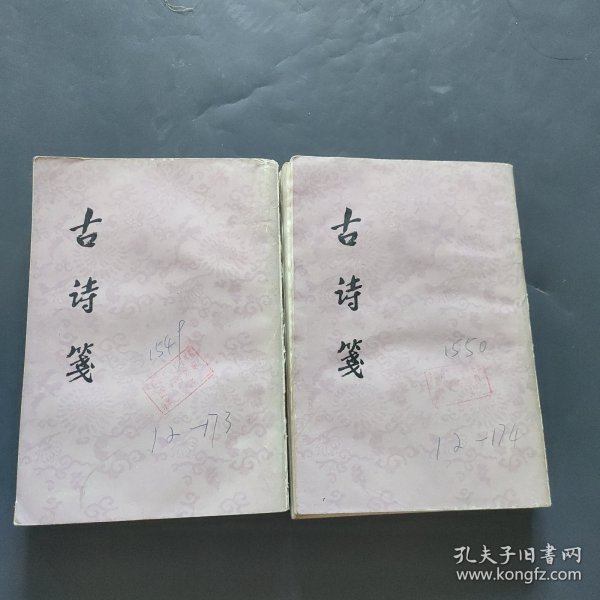 古诗笺
1549
12-173
古诗笺
1550
12-174
孔夫子旧书网
www.kongfz.com